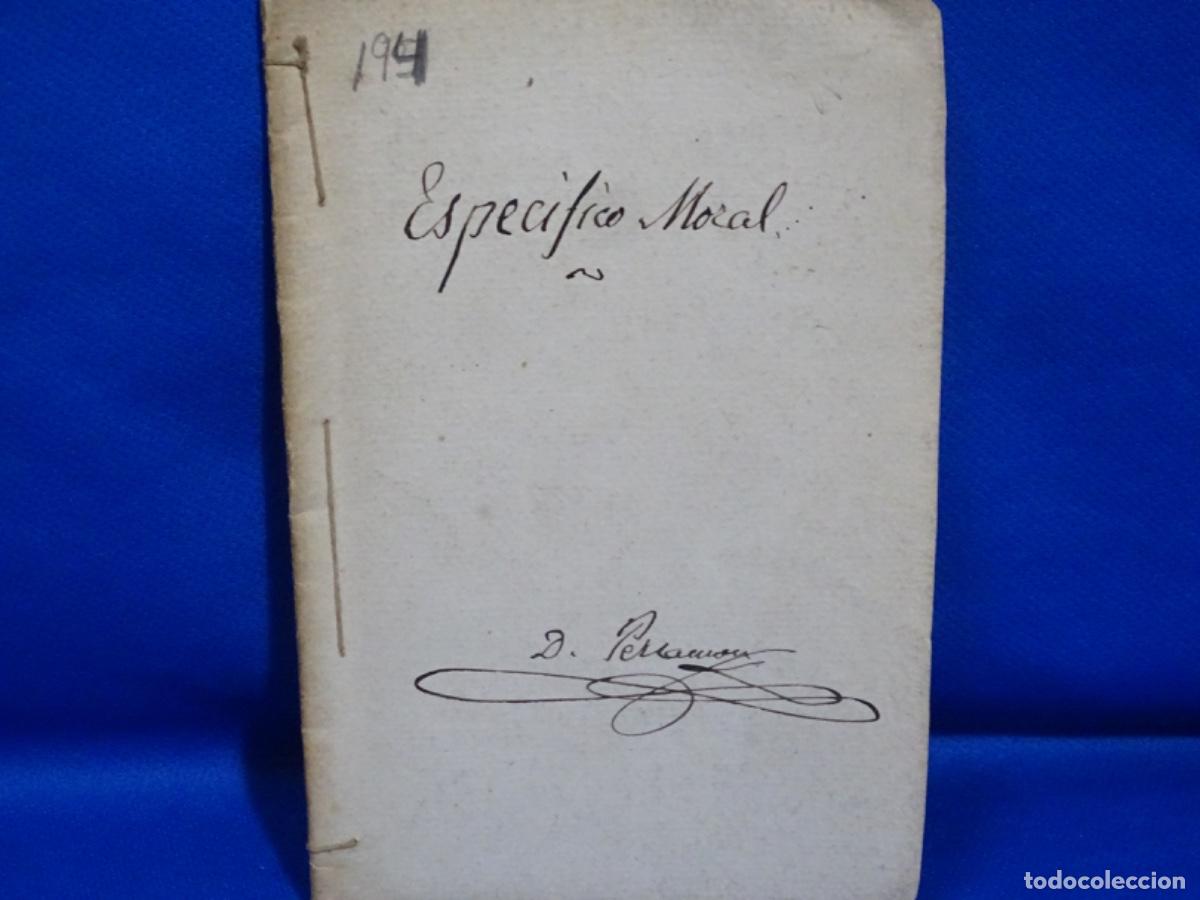 Especifico Moral.
~
D. Perramon
todocoleccion